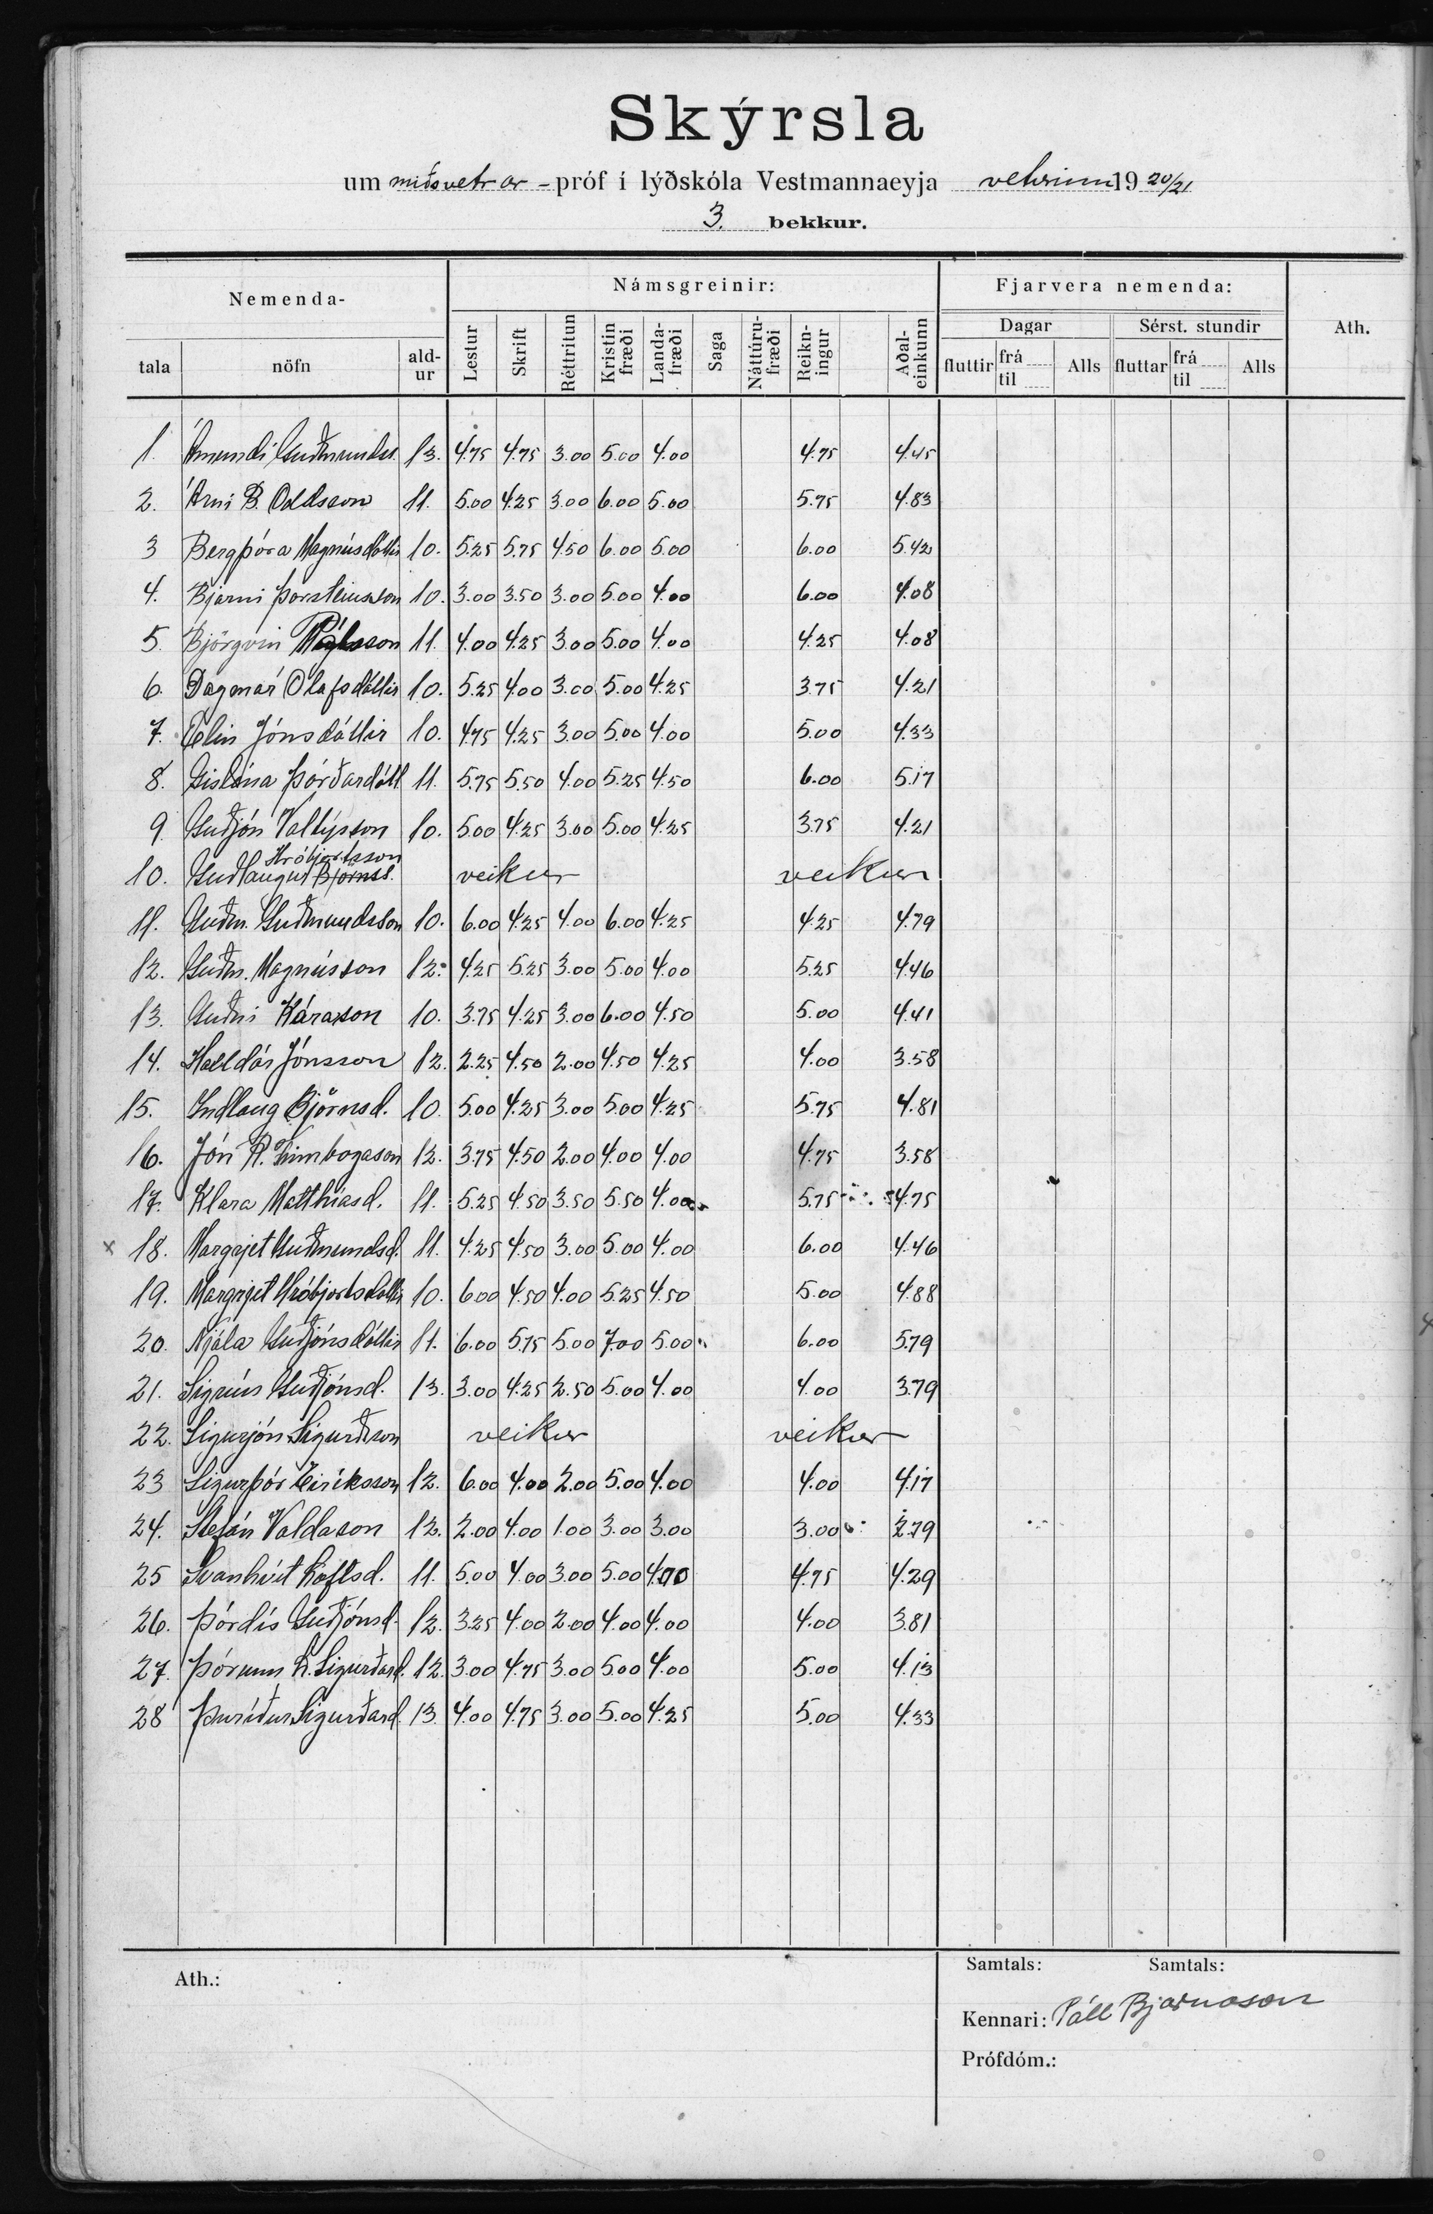 Skýrsla
um miðsvetrar-próf í lýðskóla Vestmannaeyja veturinn 1920/21
3. bekkur.
Nemenda- Námsgreinir: Fjarvera nemenda: Ath.
tala nöfn ald-ur Lestur Skrift Réttritun Kristin fræði Landa-fræði Saga Náttúru-fræði Reikn-ingur Aðal-einkunn Dagar Sérst. stundir
fluttir frá til Alls fluttar frá til Alls
1. Ámundi Guðmundss. 13. 4.75 4.75 3.00 5.00 4.00 4.75 4.45
2. Árni B. Oddsson 11. 5.00 4.25 3.00 6.00 5.00 5.75 4.83
3 Bergþóra Magnúsdóttir 10. 5.25 5.75 4.50 6.00 5.00 6.00 5.42
4. Bjarni Þorsteinsson 10. 3.00 3.50 3.00 5.00 4.00 6.00 4.08
5. Björgvin Pálsson 11. 4.00 4.25 3.00 5.00 4.00 4.25 4.08
6. Dagmar Ólafsdóttir 10. 5.25 4.00 3.00 5.00 4.25 3.75 4.21
7. Elín Jónsdóttir 10. 4.75 4.25 3.00 5.00 4.00 5.00 4.33
8. Gislína Þórðardótt 11. 5.75 5.50 4.00 5.25 4.50 6.00 5.17
9. Guðjón Valtýsson 10. 5.00 4.25 3.00 5.00 4.25 3.75 4.21
Hróbjartsson
10. Guðlaugur Björnss. veikur veikur
11. Guðm. Guðmundsson 10. 6.00 4.25 4.00 6.00 4.25 4.25 4.79
12. Guðm. Magnússon 12. 4.25 5.25 3.00 5.00 4.00 5.25 4.46
13. Guðni Kárason 10. 3.75 4.25 3.00 6.00 4.50 5.00 4.41
14. Halldór Jónsson 12. 2.25 4.50 2.00 4.50 4.25 4.00 3.58
15. Indlaug Björnsd. 10. 5.00 4.25 3.00 5.00 4.25 5.75 4.81
16. Jón R. Finnbogason 12. 3.75 4.50 2.00 4.00 4.00 4.75 3.58
17. Klara Matthíasd. 11. 5.25 4.50 3.50 5.50 4.00 5.75 4.75
x 18. Margrjet Guðmundsd. 11. 4.25 4.50 3.00 5.00 4.00 6.00 4.46
19. Margrjet Hróbjartsdóttir 10. 6.00 4.50 4.00 5.25 4.50 5.00 4.88
20. Njála Guðjónsdóttir 11. 6.00 5.75 5.00 7.00 5.00 6.00 5.79
21. Sigrún Guðjónsd. 13. 3.00 4.25 2.50 5.00 4.00 4.00 3.79
22. Sigurjón Sigurðsson veikur veikur
23 Sigurþór Eiríksson 12. 6.00 4.00 2.00 5.00 4.00 4.00 4.17
24. Stefán Valdason 12. 2.00 4.00 1.00 3.00 3.00 3.00 2.79
25 Svanhvít Loftsd. 11. 5.00 4.00 3.00 5.00 4.00 4.75 4.29
26. Þórdís Guðjónsd. 12. 3.25 4.00 2.00 4.00 4.00 4.00 3.81
27. Þórunn L. Sigurðard. 12. 3.00 4.75 3.00 5.00 4.00 5.00 4.13
28 Þuríður Sigurðard. 13. 4.00 4.75 3.00 5.00 4.25 5.00 4.33
Ath.: Samtals: Samtals:
Kennari: Páll Bjarnason
Prófdóm.: